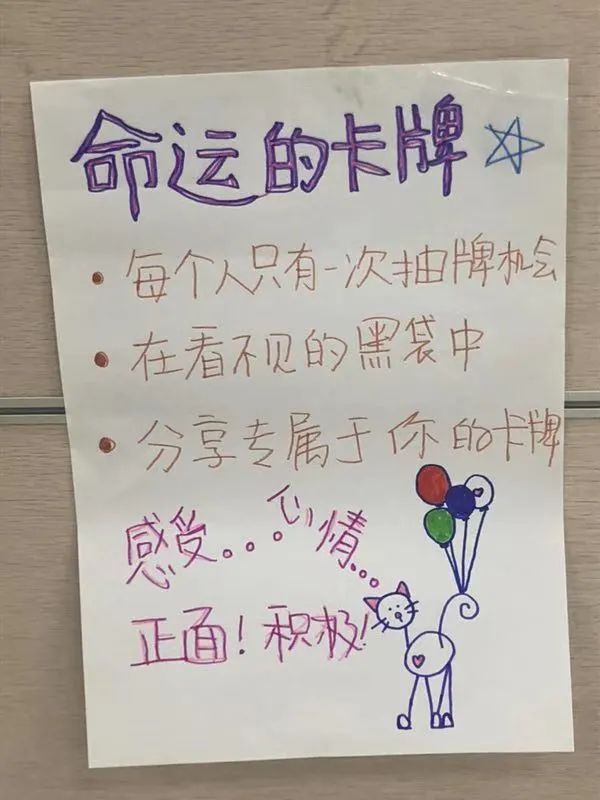 命运的卡牌
• 每个人只有一次抽牌机会
• 在看不见的黑袋中
• 分享专属于你的卡牌
感受...心情...
正面！积极！